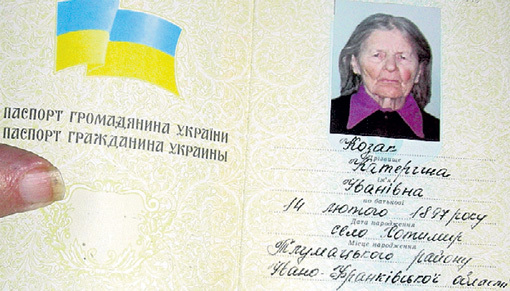 ПАСПОРТ ГРОМАДЯНИНА УКРАЇНИ
ПАСПОРТ ГРАЖДАНИНА УКРАИНЫ
Козак
Прізвище
Катерина
Ім'я
Іванівна
по батькові
14 лютого 1897 року
Дата народження
село Хотимир
Місце народження
Тлумацького району
Івано-Франківської области